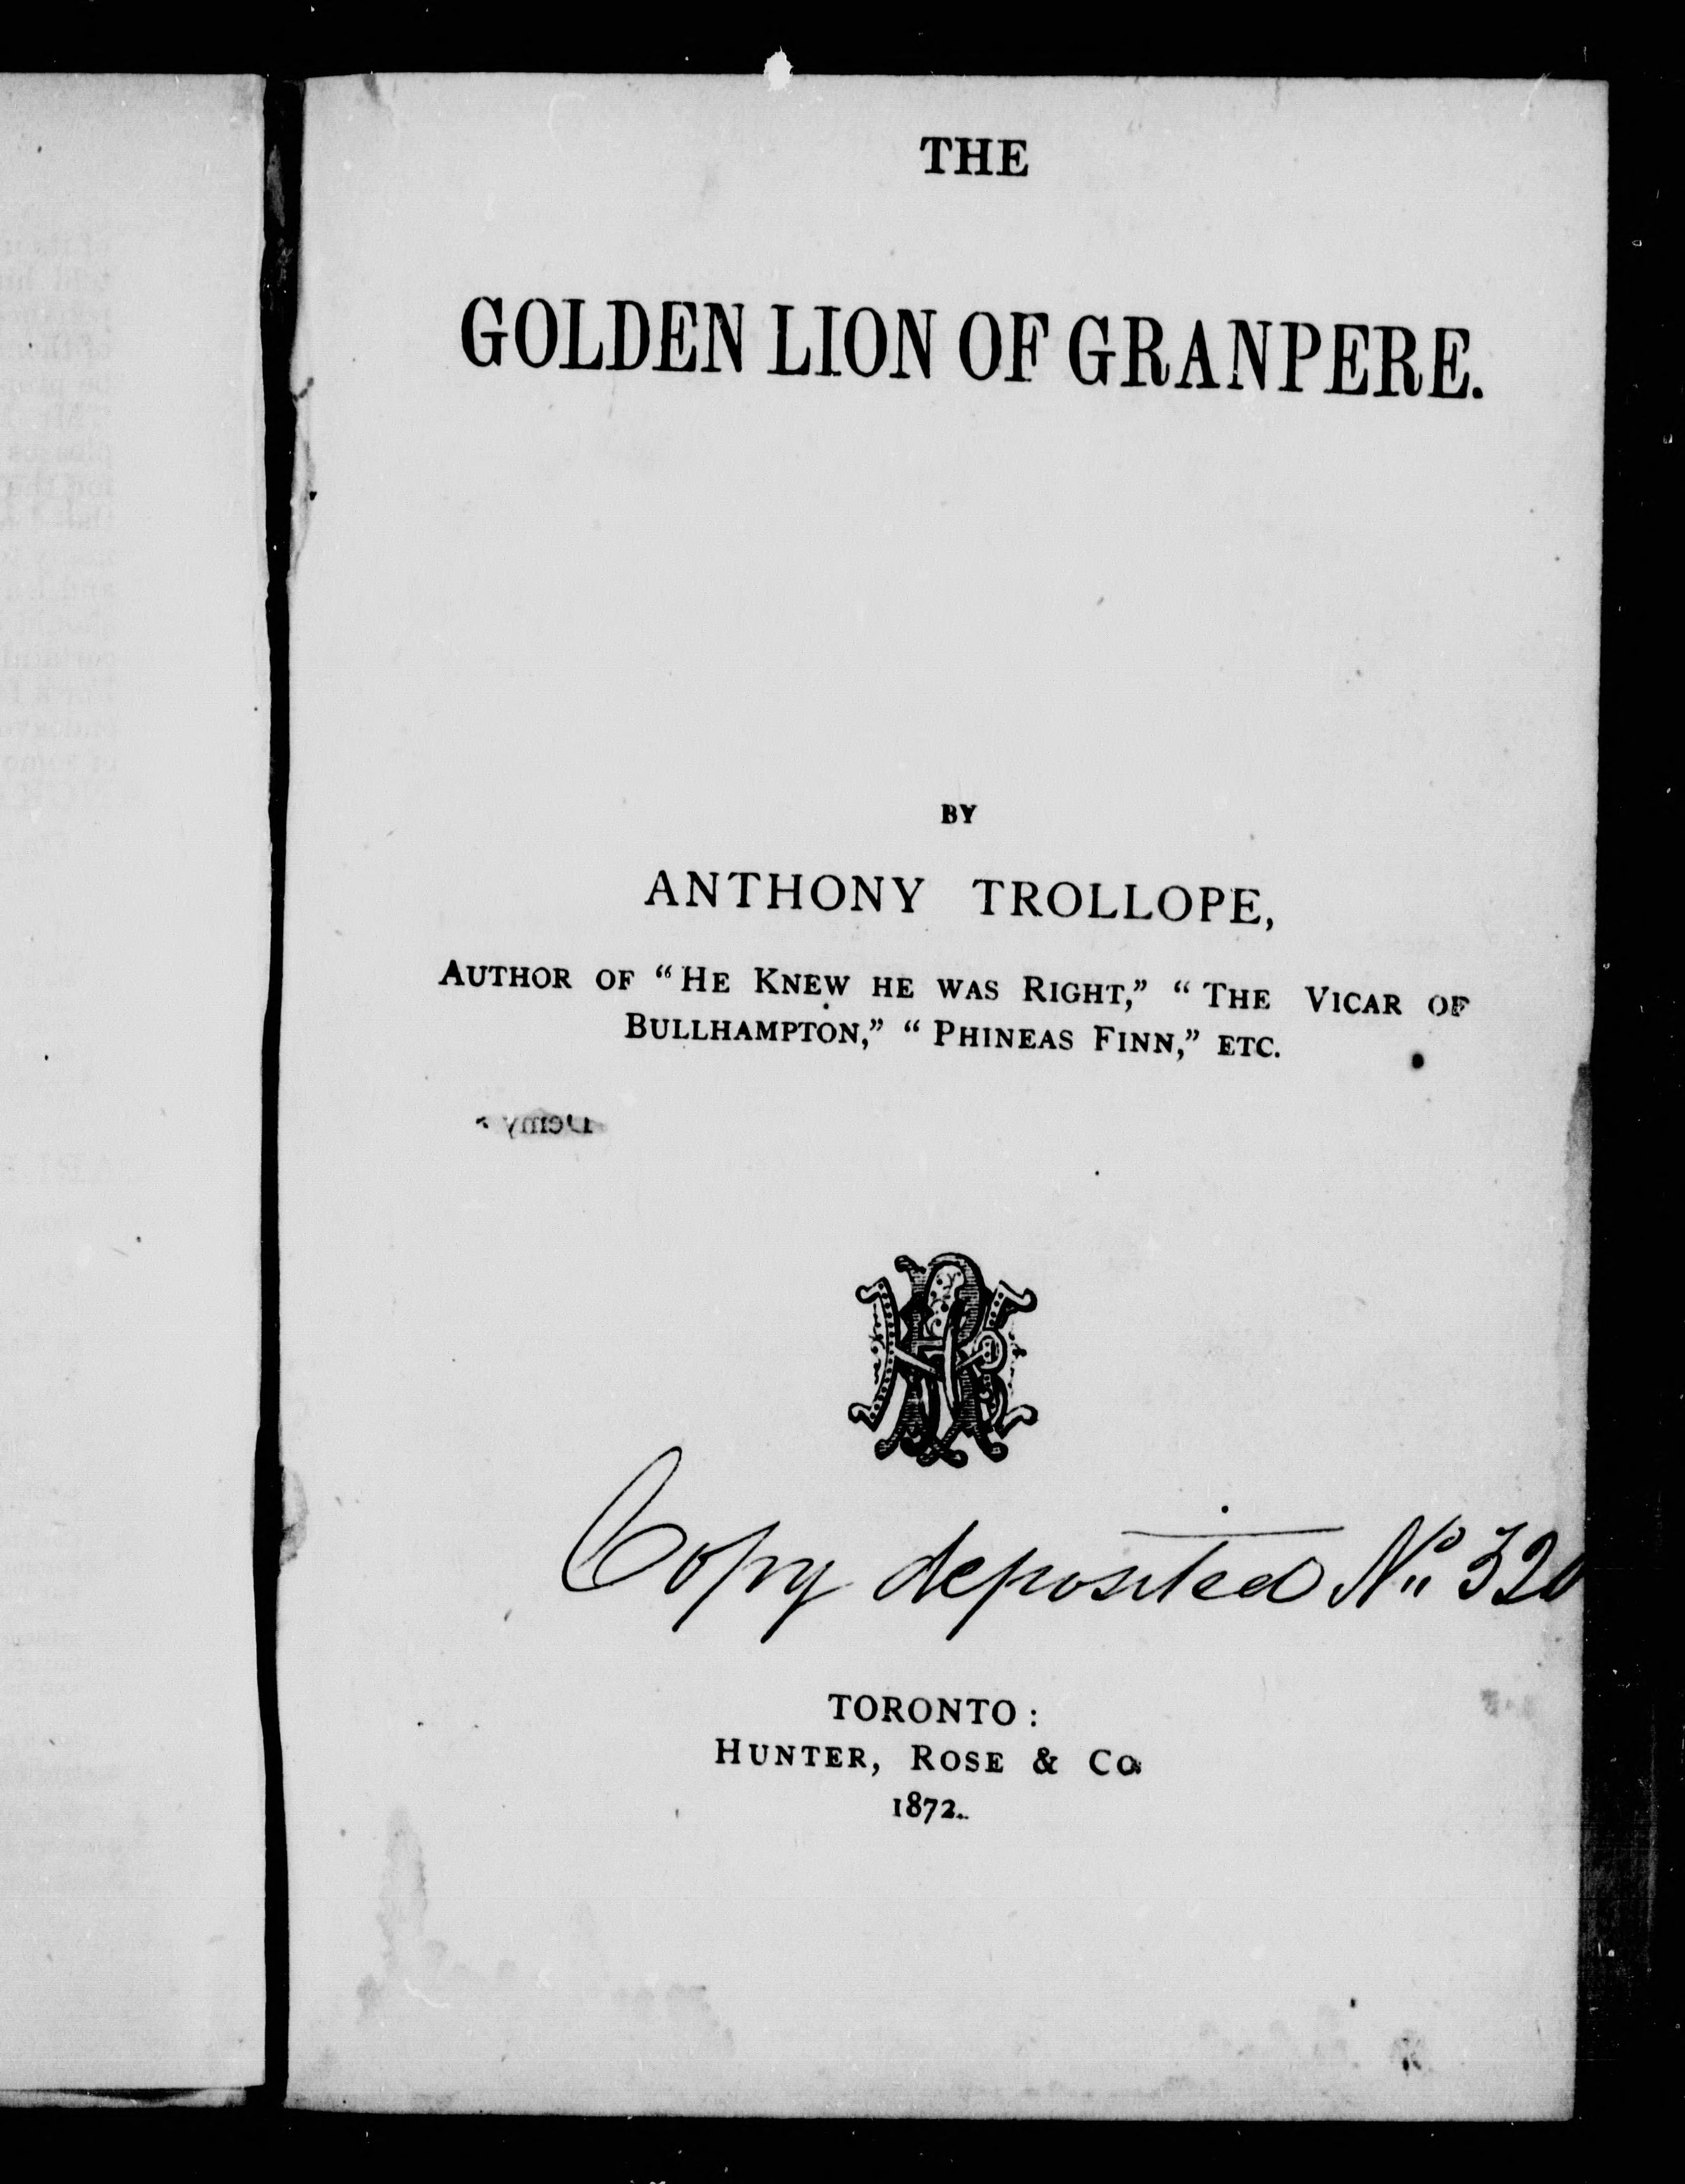 THE
GOLDEN LION OF GRANPERE.
BY
ANTHONY TROLLOPE,
AUTHOR OF "HE KNEW HE WAS RIGHT," "THE VICAR OF
BULLHAMPTON," "PHINEAS FINN," ETC.
Copy deposited No 320
TORONTO:
HUNTER, ROSE & CO.
1872.